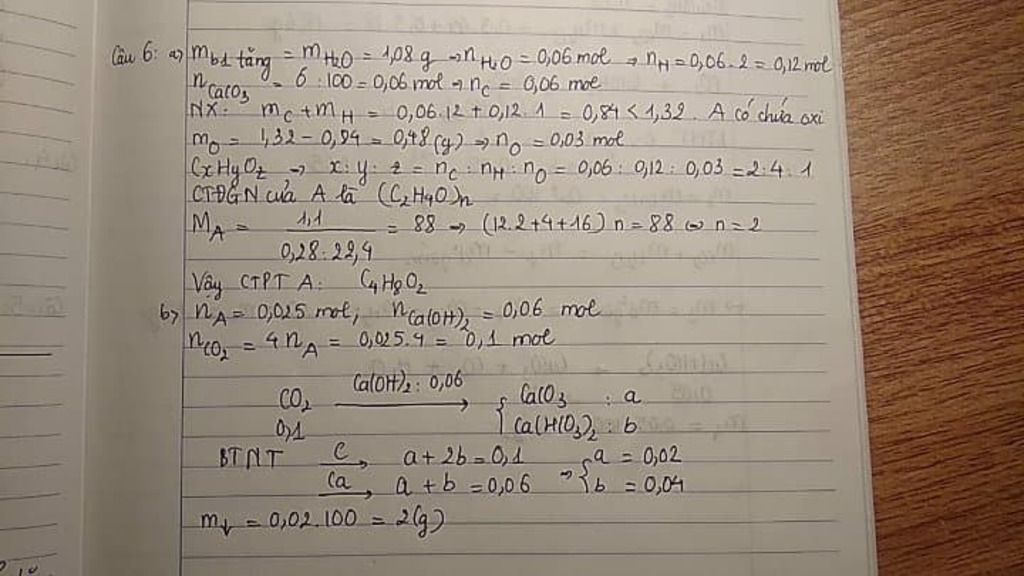 Câu 6: a) m b1 tăng = mH2O = 1,08 g → nH2O = 0,06 mol → nH = 0,06.2 = 0,12 mol
nCaCO3 = 6 : 100 = 0,06 mol → nC = 0,06 mol
NX: mC + mH = 0,06.12 + 0,12.1 = 0,84 < 1,32. A có chứa oxi
mO = 1,32 - 0,84 = 0,48 (g) → nO = 0,03 mol
CxHyOz → x : y : z = nC : nH : nO = 0,06 : 0,12 : 0,03 = 2 : 4 : 1
CTĐGN của A là (C2H4O)n
MA = 1,1 / 0,28:22,4 = 88 → (12.2+4+16) n = 88 ⇔ n = 2
Vậy CTPT A: C4H8O2
b) nA = 0,025 mol; nCa(OH)2 = 0,06 mol
nCO2 = 4nA = 0,025.4 = 0,1 mol
Ca(OH)2 : 0,06
CO2 → { CaCO3 : a
0,1 Ca(HCO3)2 : b
BTNT C → a + 2b = 0,1 → { a = 0,02
Ca → a + b = 0,06 b = 0,04
m↓ = 0,02.100 = 2 (g)